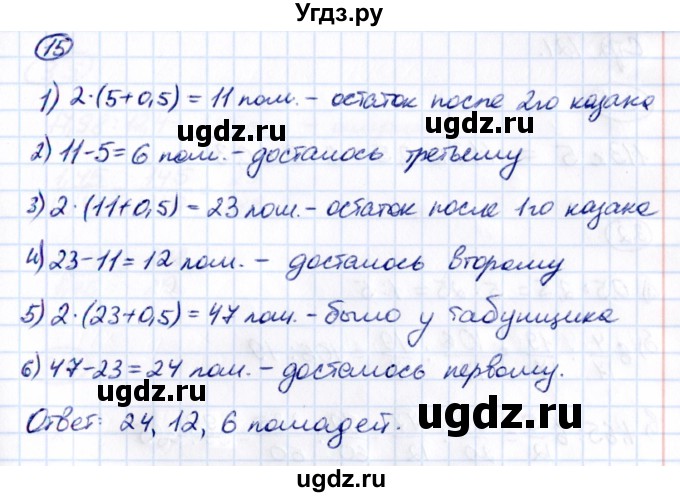 Угдз.ру
15
1) 2·(5+0,5) = 11 лош. - остаток после 2го казака
ugdz.ru ugdz.ru
2) 11-5=6 лош. - досталось третьему
3) 2·(11+0,5) = 23 лош. - остаток после 1го казака
ugdz.ru ugdz.ru
4) 23-11=12 лош. - досталось второму
5) 2·(23+0,5) = 47 лош. - было у табунщика
ugdz.ru ugdz.ru
6) 47-23=24 лош. - досталось первому.
ugdz.ru ugdz.ru
Ответ: 24, 12, 6 лошадей.
ugdz.ru